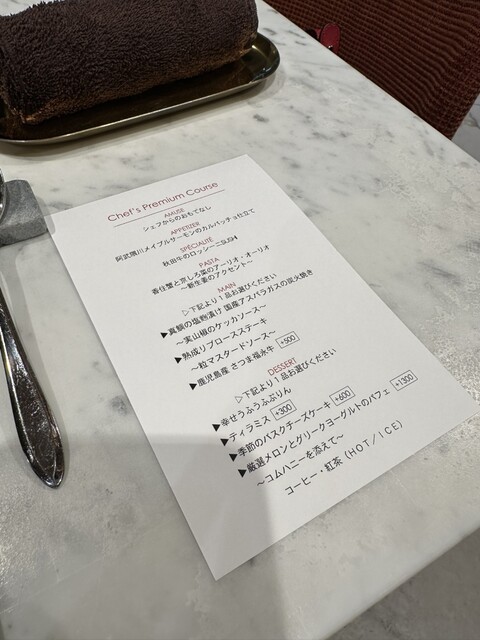 Chef's Premium Course
AMUSE
シェフからのおもてなし
APPETIZER
阿武隈川メイプルサーモンのカルパッチョ仕立て
SPÉCIALITÉ
秋田牛のロッシーニSUSHI
PASTA
香住蟹と京しろ菜のアーリオ・オーリオ
～新生姜のアクセント～
MAIN
▷下記より1品お選びください
▶真鯛の塩麹漬け 国産アスパラガスの炭火焼き
～実山椒のケッカソース～
▶熟成リブロースステーキ
～粒マスタードソース～
▶鹿児島産 さつま福永牛 +500
DESSERT
▷下記より1品お選びください
▶幸せうふうふぷりん
▶ティラミス +300
▶季節のバスクチーズケーキ +600
▶厳選メロンとグリークヨーグルトのパフェ +1300
～コムハニーを添えて～
コーヒー・紅茶（HOT/ICE）